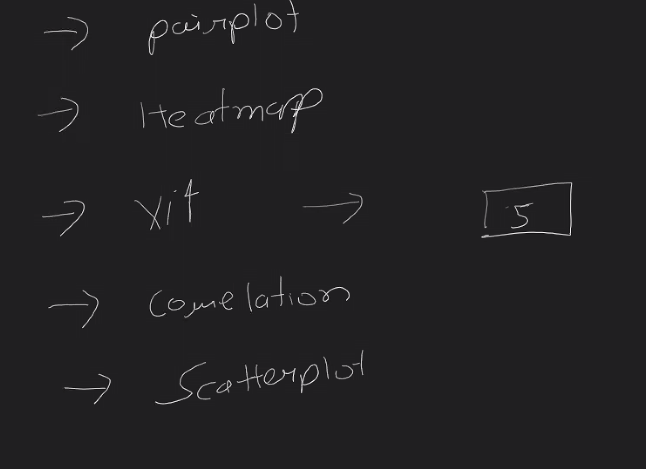 → pairplot
→ Heatmapp
→ → 5
→ correlation
→ Scatterplot